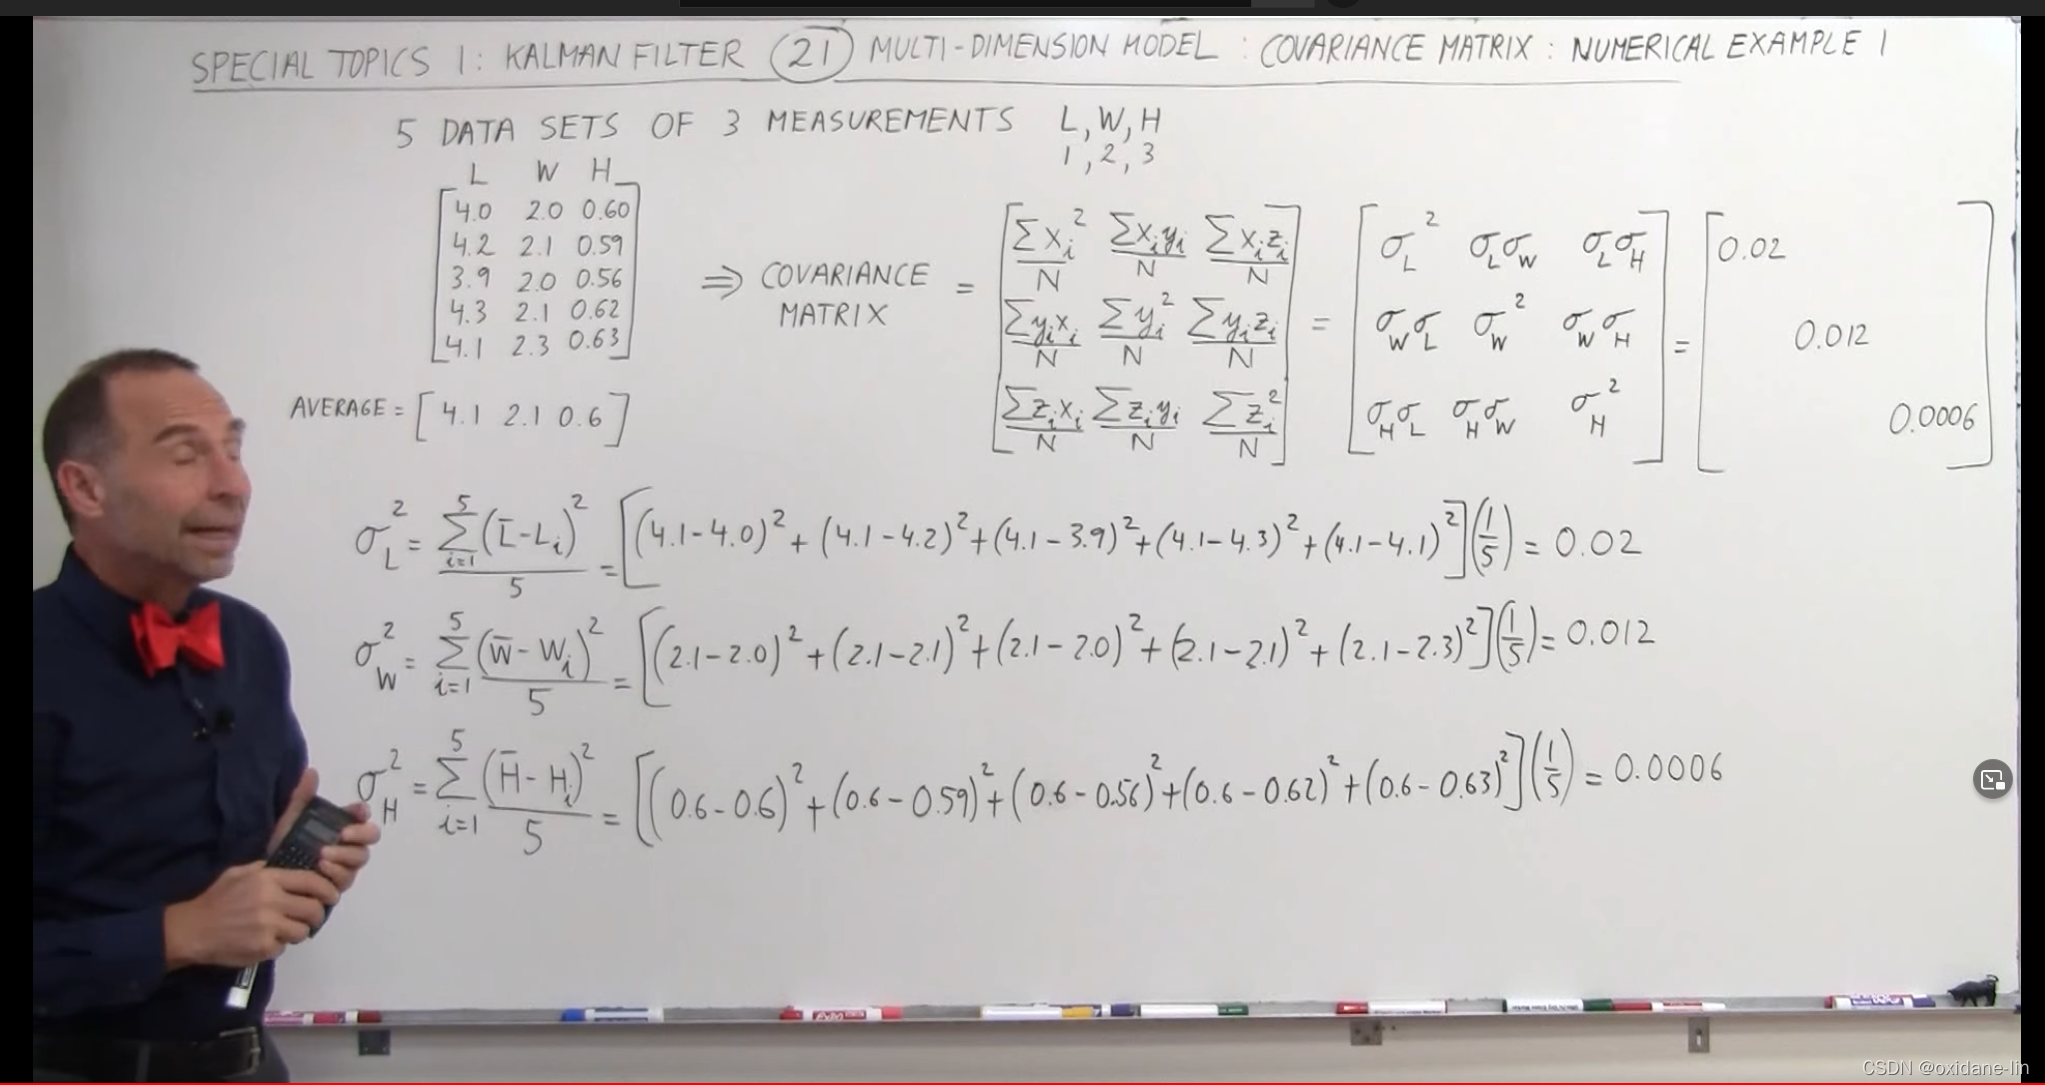 SPECIAL TOPICS 1: KALMAN FILTER (21) MULTI-DIMENSION MODEL : COVARIANCE MATRIX : NUMERICAL EXAMPLE 1
5 DATA SETS OF 3 MEASUREMENTS L, W, H
1, 2, 3
L W H
4.0 2.0 0.60
4.2 2.1 0.59
3.9 2.0 0.56
4.3 2.1 0.62
4.1 2.3 0.63
⇒ COVARIANCE MATRIX =
[Σxᵢ²/N Σxᵢyᵢ/N Σxᵢzᵢ/N
Σyᵢxᵢ/N Σyᵢ²/N Σyᵢzᵢ/N
Σzᵢxᵢ/N Σzᵢyᵢ/N Σzᵢ²/N]
= [σ_L² σ_Lσ_W σ_Lσ_H
σ_Wσ_L σ_W² σ_Wσ_H
σ_Hσ_L σ_Hσ_W σ_H²]
= [0.02
0.012
0.0006]
AVERAGE = [4.1 2.1 0.6]
σ_L² = Σ_{i=1}^{5} (L̄-Lᵢ)²/5 = [(4.1-4.0)² + (4.1-4.2)² + (4.1-3.9)² + (4.1-4.3)² + (4.1-4.1)²](1/5) = 0.02
σ_W² = Σ_{i=1}^{5} (W̄-Wᵢ)²/5 = [(2.1-2.0)² + (2.1-2.1)² + (2.1-2.0)² + (2.1-2.1)² + (2.1-2.3)²](1/5) = 0.012
σ_H² = Σ_{i=1}^{5} (H̄-Hᵢ)²/5 = [(0.6-0.6)² + (0.6-0.59)² + (0.6-0.56)² + (0.6-0.62)² + (0.6-0.63)²](1/5) = 0.0006
CSDN @oxidane-lin